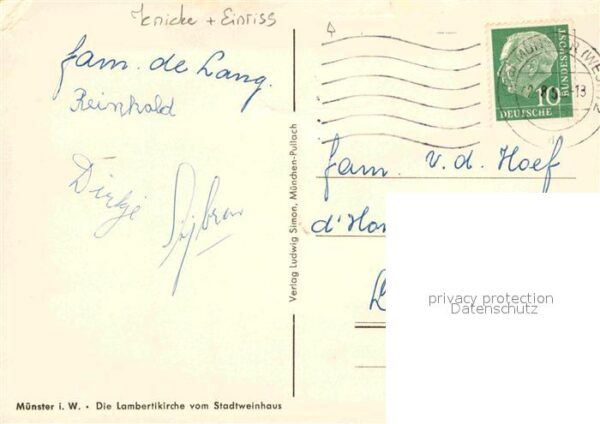 Knicke + Einriss
fam. de Lang.
Reinhold
Dirkje
Verlag Ludwig Simon, München-Pullach
Münster i. W. • Die Lambertikirche vom Stadtweinhaus
MÜNSTER (WESTF)
-13
10
BUNDESPOST
DEUTSCHE
fam. v. d. Hoef
privacy protection
Datenschutz